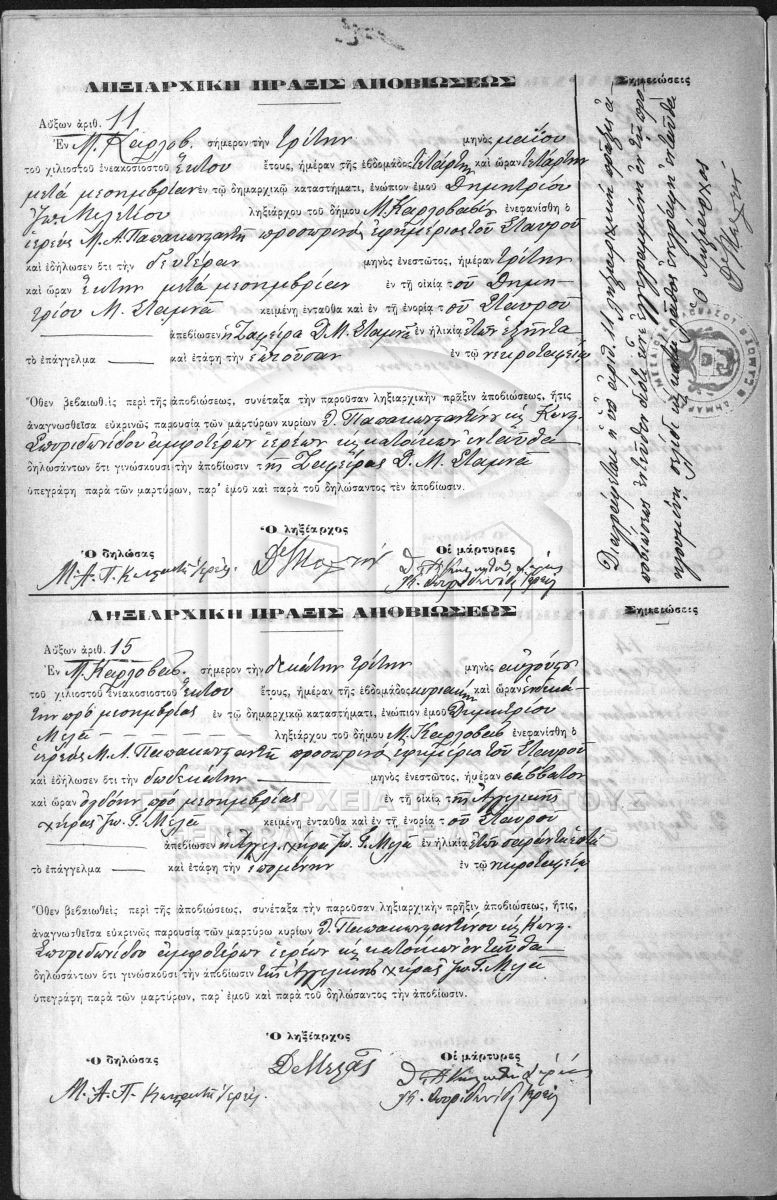 ΛΗΞΙΑΡΧΙΚΗ ΠΡΑΞΙΣ ΑΠΟΒΙΩΣΕΩΣ
Αὔξων ἀριθ. 11
Ἐν Μ. Καρλοβ. σήμερον τὴν τρίτην μηνὸς μαΐου
τοῦ χιλιοστοῦ ἐνεακοσιοστοῦ ἕκτου ἔτους, ἡμέραν τῆς ἑβδομάδος τετάρτην καὶ ὥραν τετάρτην
μετὰ μεσημβρίαν ἐν τῷ δημαρχικῷ καταστήματι, ἐνώπιον ἐμοῦ Δημητρίου
ληξιάρχου τοῦ δήμου Μ. Καρλοβασίων ἐνεφανίσθη ὁ
ἱερεὺς Μ. Α. Παπακωνσταντῆ προσωρινὸς ἐφημέριος τοῦ Σταυροῦ
καὶ ἐδήλωσεν ὅτι τὴν δευτέραν μηνὸς ἐνεστῶτος, ἡμέραν τρίτην
καὶ ὥραν ἕκτην μετὰ μεσημβρίαν ἐν τῇ οἰκίᾳ τοῦ Δημη-
τρίου Μ. Σταμνᾶ κειμένη ἐνταῦθα καὶ ἐν τῇ ἐνορίᾳ τοῦ Σταυροῦ
ἀπεβίωσεν ἡ Ζαφείρα Δ. Μ. Σταμνᾶ ἐν ἡλικίᾳ ἐτῶν ἑξήντα
τὸ ἐπάγγελμα — καὶ ἐτάφη τὴν ἐν τῷ νεκροταφείῳ
Ὅθεν βεβαιωθεὶς περὶ τῆς ἀποβιώσεως, συνέταξα τὴν παροῦσαν ληξιαρχικὴν πρᾶξιν ἀποβιώσεως, ἥτις
ἀναγνωσθεῖσα εὐκρινῶς παρουσίᾳ τῶν μαρτύρων κυρίων Δ. Παπακωνσταντίνου κὶ Κωνσ.
Σπυριδωνίδου ἀμφοτέρων ἱερέων κὶ κατοίκων ἐνταῦθα
δηλωσάντων ὅτι γινώσκουσι τὴν ἀποβίωσιν τῆς Ζαφείρας Δ. Μ. Σταμνᾶ
ὑπεγράφη παρὰ τῶν μαρτύρων, παρ' ἐμοῦ καὶ παρὰ τοῦ δηλώσαντος τὴν ἀποβίωσιν.
Ὁ ληξίαρχος
Ὁ δηλώσας Οἱ μάρτυρες
Σημειώσεις
Διαγράφεται ἡ ὑπ' ἀριθ. 11 ληξιαρχικὴ πρᾶξις ἀ-
ποβιώσεως
Ὁ Ληξίαρχος
ΛΗΞΙΑΡΧΙΚΗ ΠΡΑΞΙΣ ΑΠΟΒΙΩΣΕΩΣ
Σημειώσεις
Αὔξων ἀριθ. 15
Ἐν Μ. Καρλοβασ. σήμερον τὴν δεκάτην τρίτην μηνὸς αὐγούστου
τοῦ χιλιοστοῦ ἐνεακοσιοστοῦ ἕκτου ἔτους, ἡμέραν τῆς ἑβδομάδος κυριακὴν καὶ ὥραν ἑνδεκά-
την πρὸ μεσημβρίας ἐν τῷ δημαρχικῷ καταστήματι, ἐνώπιον ἐμοῦ Δημητρίου
Μελᾶ ληξιάρχου τοῦ δήμου Μ. Καρλοβασ. ἐνεφανίσθη ὁ
ἱερεὺς Μ. Α. Παπακωνσταντῆ προσωρινὸς ἐφημέριος τοῦ Σταυροῦ
καὶ ἐδήλωσεν ὅτι τὴν δωδεκάτην μηνὸς ἐνεστῶτος, ἡμέραν σάββατον
καὶ ὥραν ὀγδόην πρὸ μεσημβρίας ἐν τῇ οἰκίᾳ τῆς Ἀγγελικῆς
χήρας Ἰω. Γ. Μελᾶ κειμένη ἐνταῦθα καὶ ἐν τῇ ἐνορίᾳ τοῦ Σταυροῦ
ἀπεβίωσεν ἡ Ἀγγελ. χήρα Ἰω. Γ. Μελᾶ ἐν ἡλικίᾳ ἐτῶν σαράντα ἑπτὰ
τὸ ἐπάγγελμα — καὶ ἐτάφη τὴν ἑπομένην ἐν τῷ νεκροταφείῳ
Ὅθεν βεβαιωθεὶς περὶ τῆς ἀποβιώσεως, συνέταξα τὴν παροῦσαν ληξιαρχικὴν πρᾶξιν ἀποβιώσεως, ἥτις,
ἀναγνωσθεῖσα εὐκρινῶς παρουσίᾳ τῶν μαρτύρω κυρίων Δ. Παπακωνσταντίνου κὶ Κωνσ.
Σπυριδωνίδου ἀμφοτέρων ἱερέων κὶ κατοίκων ἐνταῦθα
δηλωσάντων ὅτι γινώσκουσι τὴν ἀποβίωσιν τῆς Ἀγγελικῆς χήρας Ἰω. Γ. Μελᾶ
ὑπεγράφη παρὰ τῶν μαρτύρων, παρ' ἐμοῦ καὶ παρὰ τοῦ δηλώσαντος τὴν ἀποβίωσιν.
Ὁ ληξίαρχος
Ὁ δηλώσας Οἱ μάρτυρες
Δ Μελᾶς
ΓΕΝΙΚΑ ΑΡΧΕΙΑ ΤΟΥ ΚΡΑΤΟΥΣ
GENERAL STATE ARCHIVES